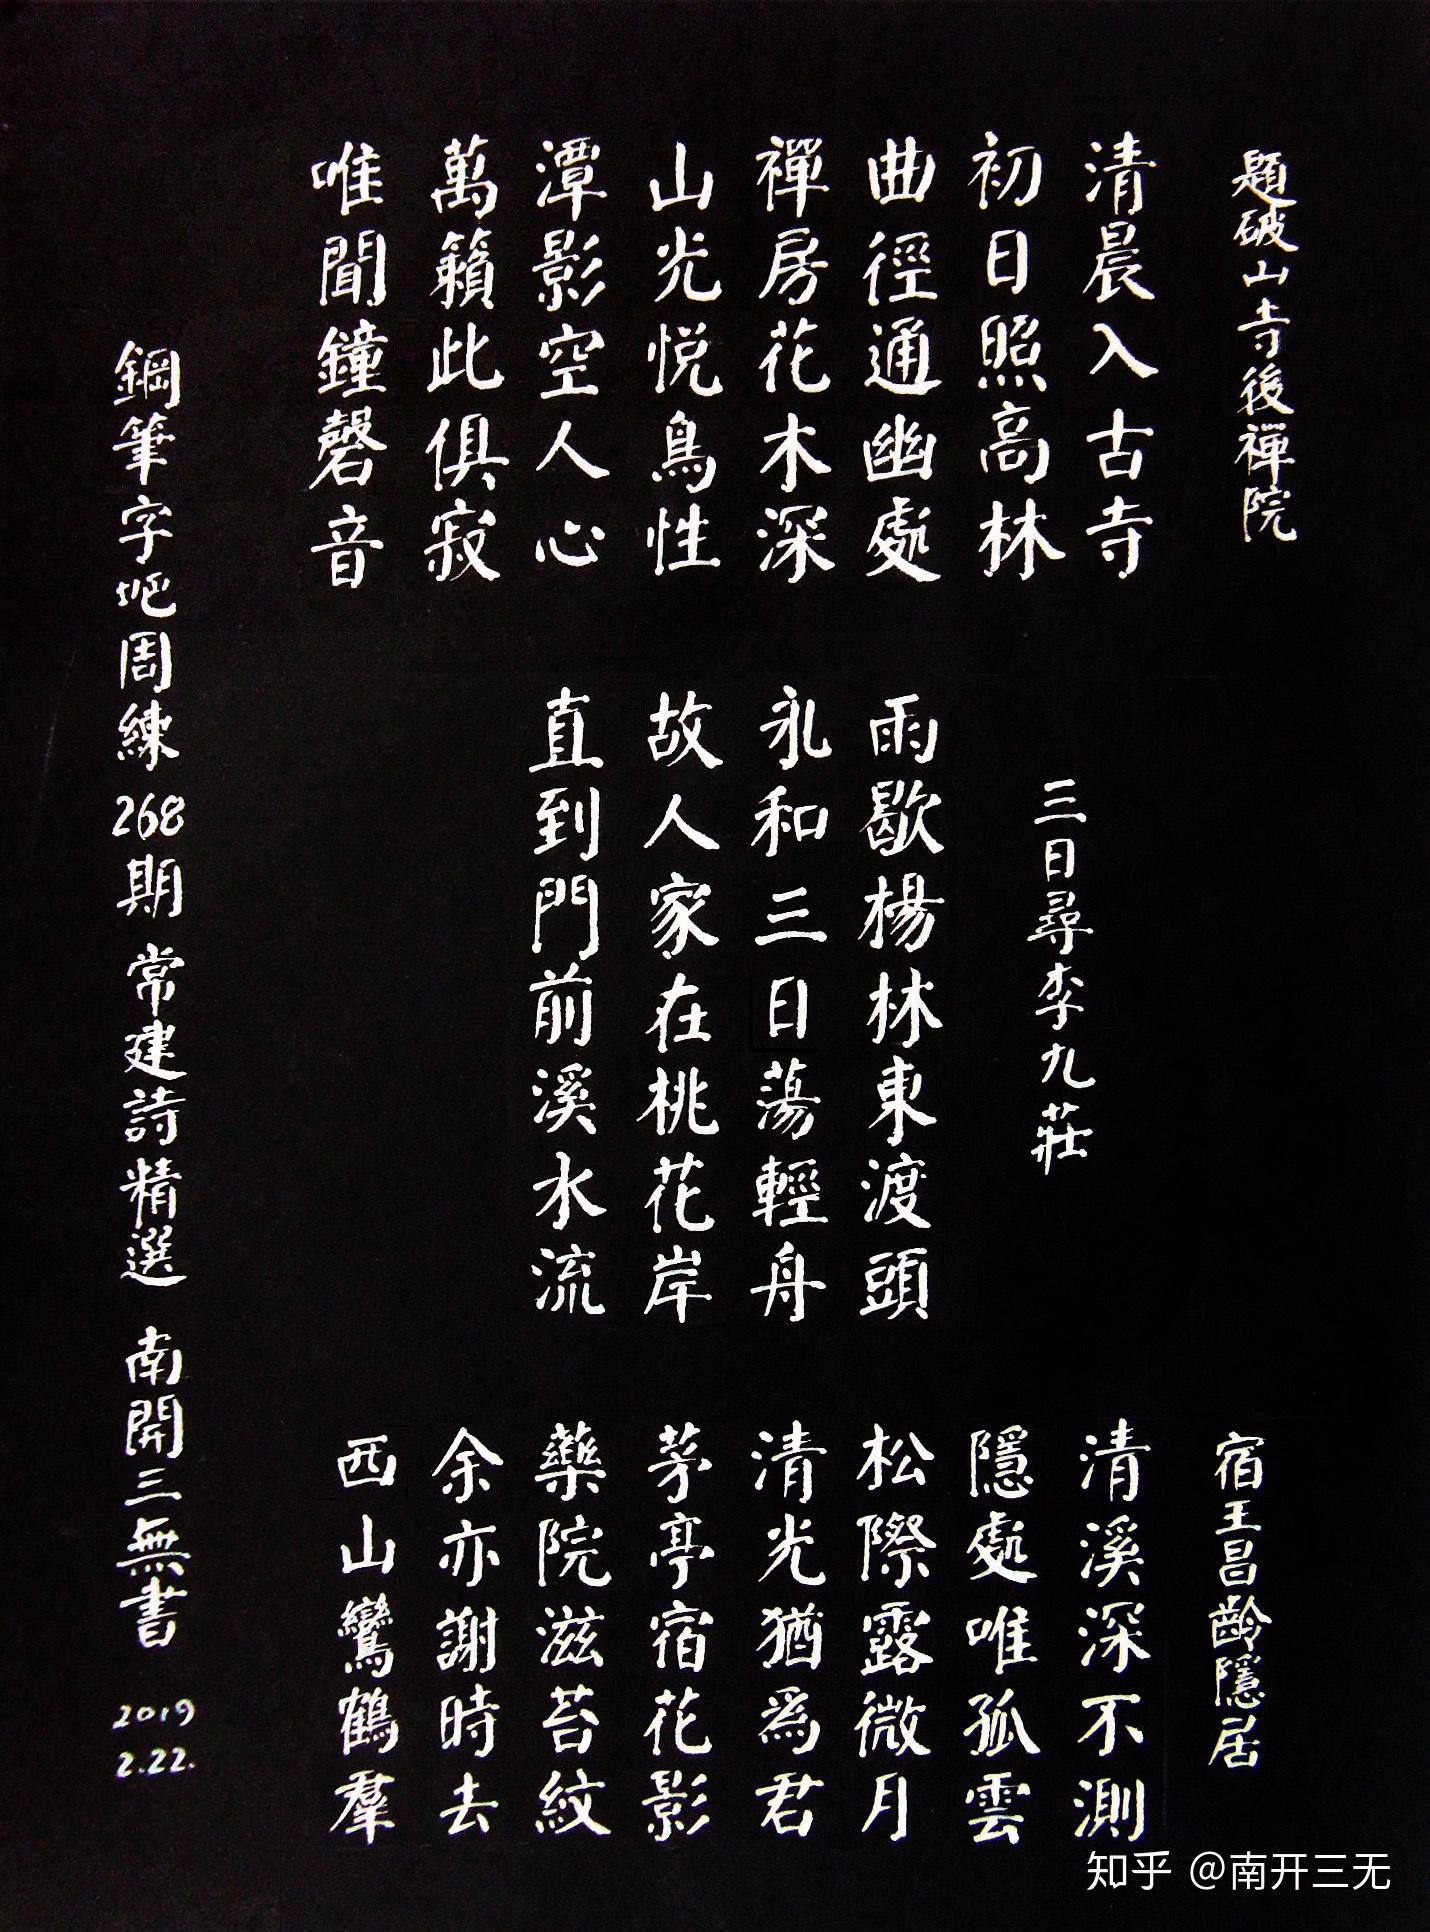 題破山寺後禪院
清晨入古寺
初日照高林
曲徑通幽處
禪房花木深
山光悦鳥性
潭影空人心
萬籟此俱寂
唯聞鐘磬音
三日尋李九莊
雨歇楊林東渡頭
永和三日蕩輕舟
故人家在桃花岸
直到門前溪水流
宿王昌齡隱居
清溪深不測
隱處唯孤雲
松際露微月
清光猶爲君
茅亭宿花影
藥院滋苔紋
余亦謝時去
西山鸞鶴羣
鋼筆字吧周練268期 常建詩精選 南開三無書 2019
2.22.
知乎 @南开三无